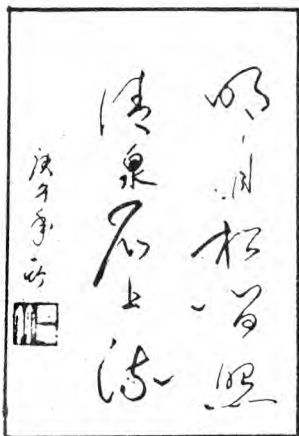 明月松间照
清泉石上流
庚午年秋